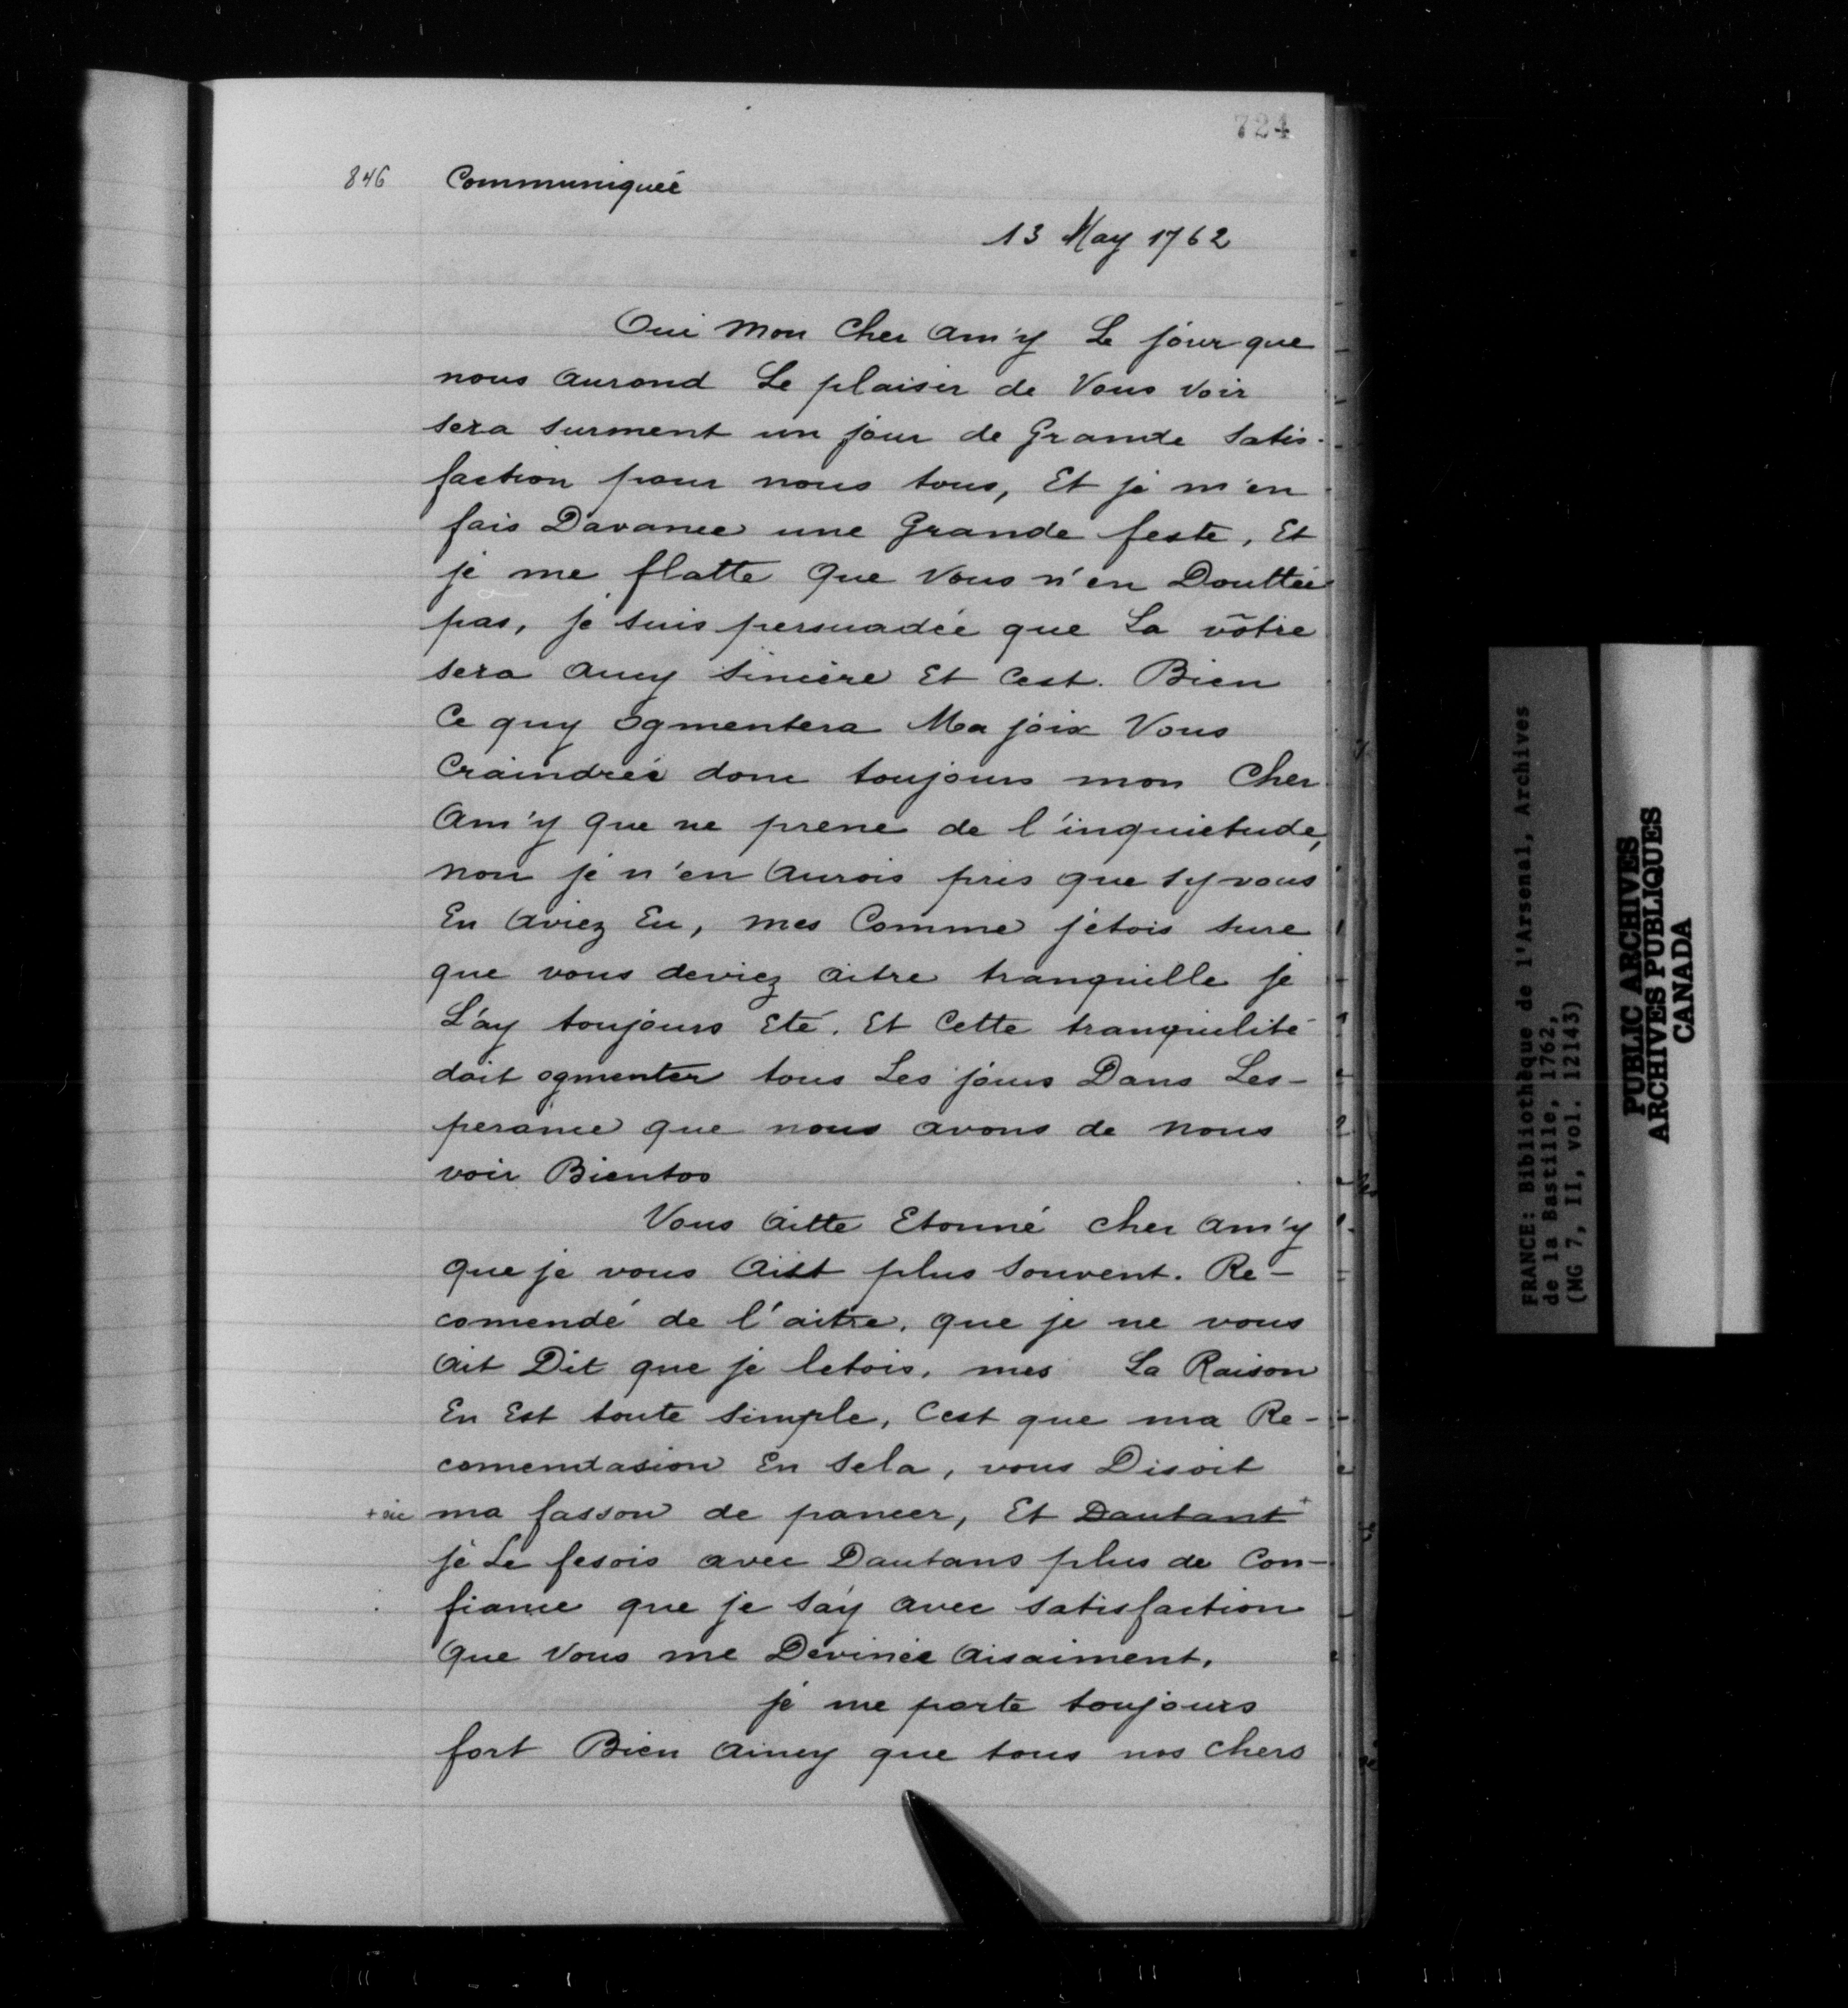 724
846 Communiqueé
13 May 1762
Oui mon Cher Am'y Le jour que
nous aurond Le plaisir de Vous Voir
sera surment un jour de Grande Satis-
faction pour nous tous, Et je m'en
fais Davance une Grande feste, Et
je me flatte Que Vous n'en Douttée
pas, je suis persuadée que La vôtre
sera aucy Sincère Et Cest. Bien
Ce quy ogmentera Ma joix Vous
Craindréé donc toujours mon Cher
Am'y Que ne prene de l'inquietude,
non je n'en Aurois pris que sy vous
En Aviez Eu, mes Comme j'étois sure
que vous deviez aitre tranquille je
L'ay toujours Eté. Et Cette tranquilité
doit ogmenter tous Les jours Dans Les-
perance que nous avons de nous
voir Bientos
Vous Aitte Etonné cher am'y
que je vous Aist plus Souvent. Re-
comendé de l'aitre, que je ne vous
Ait Dit que je letois, mes La Raison
En Est toute Simple, Cest que ma Re-
comendasion En Sela, vous Disoit
+ sic ma fasson de pancer, Et Dautant +
je Le fesois avec Dautans plus de Con-
fiance que je Say avec Satisfaction
Que Vous me Devinéé Aisaiment,
je me porte toujours
fort Bien Aincy que tous nos chers
FRANCE: Bibliothèque de l'Arsenal, Archives
de la Bastille, 1762,
(MG 7, II, vol. 12143)
PUBLIC ARCHIVES
ARCHIVES PUBLIQUES
CANADA